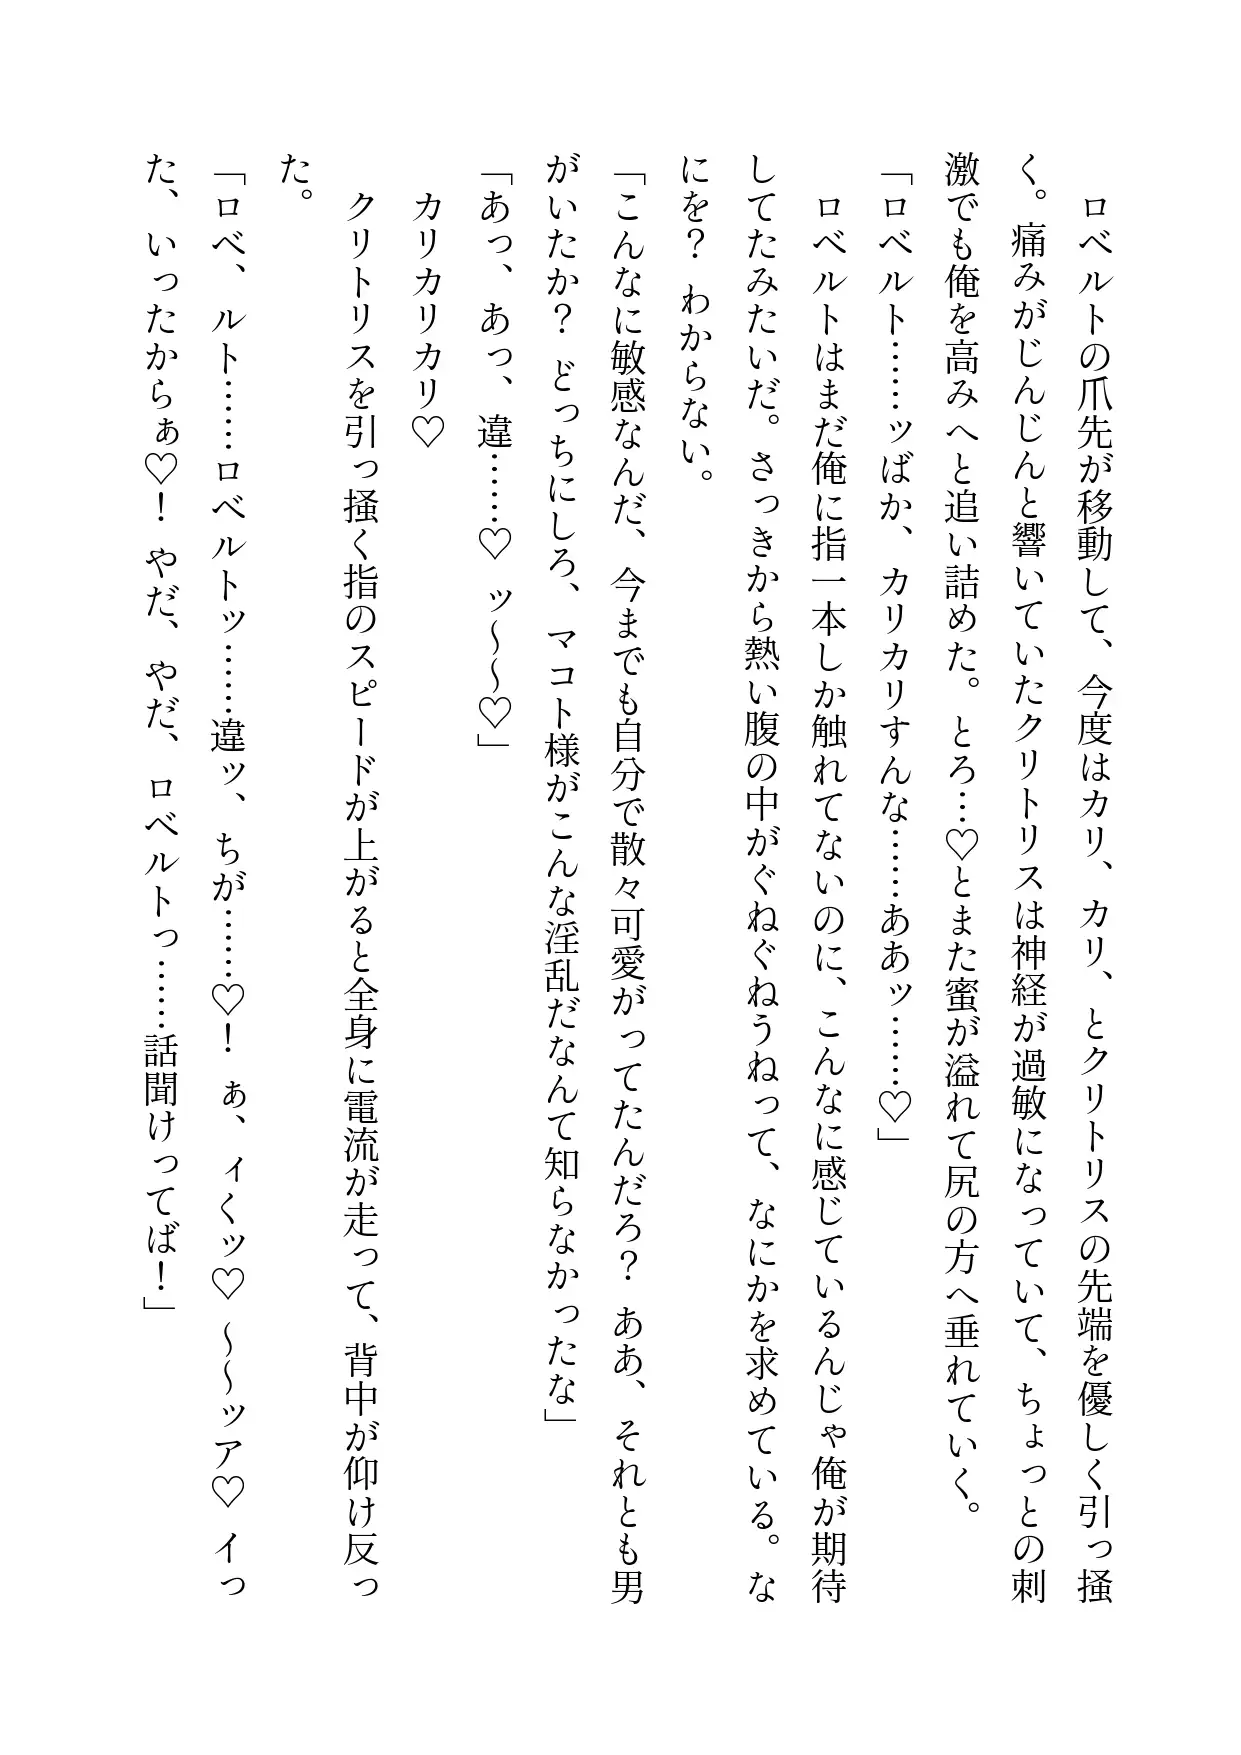 ロベルトの爪先が移動して、今度はカリ、カリ、とクリトリスの先端を優しく引っ掻
く。痛みがじんじんと響いていたクリトリスは神経が過敏になっていて、ちょっとの刺
激でも俺を高みへと追い詰めた。とろ…♡とまた蜜が溢れて尻の方へ垂れていく。
「ロベルト……ッばか、カリカリすんな……ああッ……♡」
ロベルトはまだ俺に指一本しか触れてないのに、こんなに感じているんじゃ俺が期待
してたみたいだ。さっきから熱い腹の中がぐねぐねうねって、なにかを求めている。な
にを？ わからない。
「こんなに敏感なんだ、今までも自分で散々可愛がってたんだろ？ ああ、それとも男
がいたか？ どっちにしろ、マコト様がこんな淫乱だなんて知らなかったな」
「あっ、あっ、違……♡ ッ～～♡」
カリカリカリ♡
クリトリスを引っ掻く指のスピードが上がると全身に電流が走って、背中が仰け反っ
た。
「ロベ、ルト……ロベルトッ……違ッ、ちが……♡！ ぁ、ィくッ♡ ～～ッア♡ イっ
た、いったからぁ♡！ やだ、やだ、ロベルトっ……話聞けってば！」